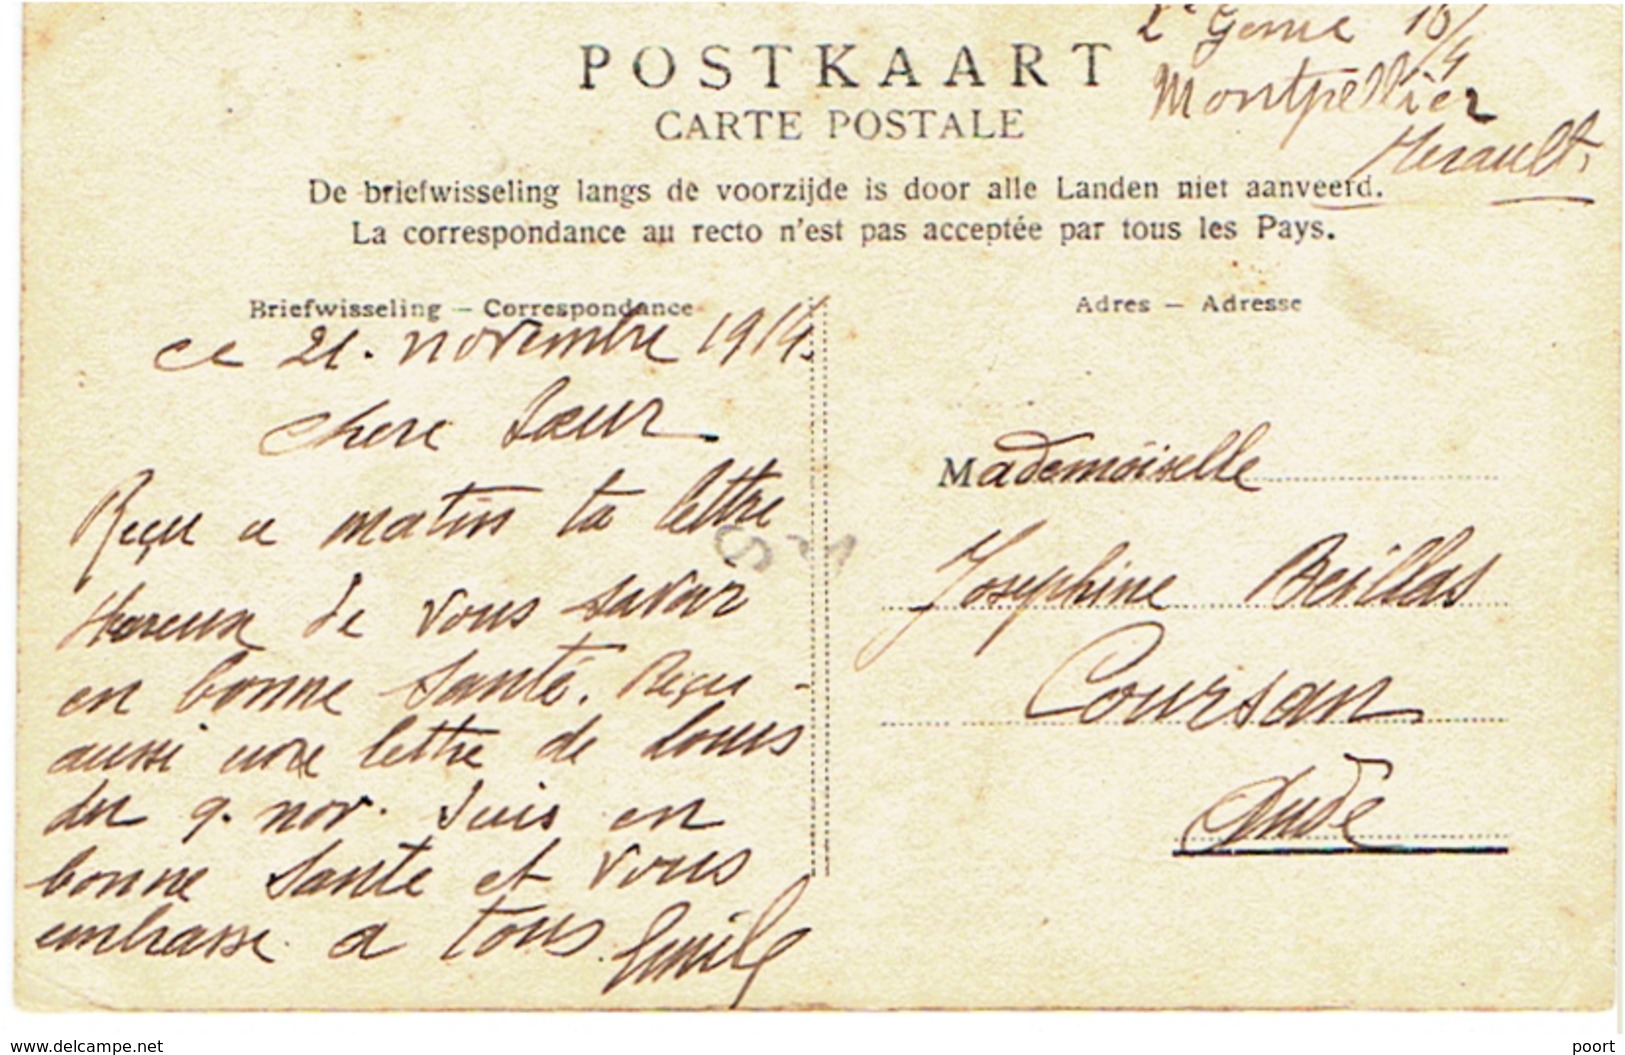 2e Genie 16/4
Montpellier
Herault.
POSTKAART
CARTE POSTALE
De briefwisseling langs de voorzijde is door alle Landen niet aanveerd.
La correspondance au recto n'est pas acceptée par tous les Pays.
Briefwisseling – Correspondance
Adres – Adresse
ce 21. novembre 1914.
chere Sœur
Reçu ce matin ta lettre
Hereux de vous savoir
en bonne santé. Reçu
aussi une lettre de Louis
du 9. nov. Suis en
bonne Sante et vous
embrasse a tous. Emile
Mademoiselle
Josephine Beillas
Coursan
Aude
www.delcampe.net
poort